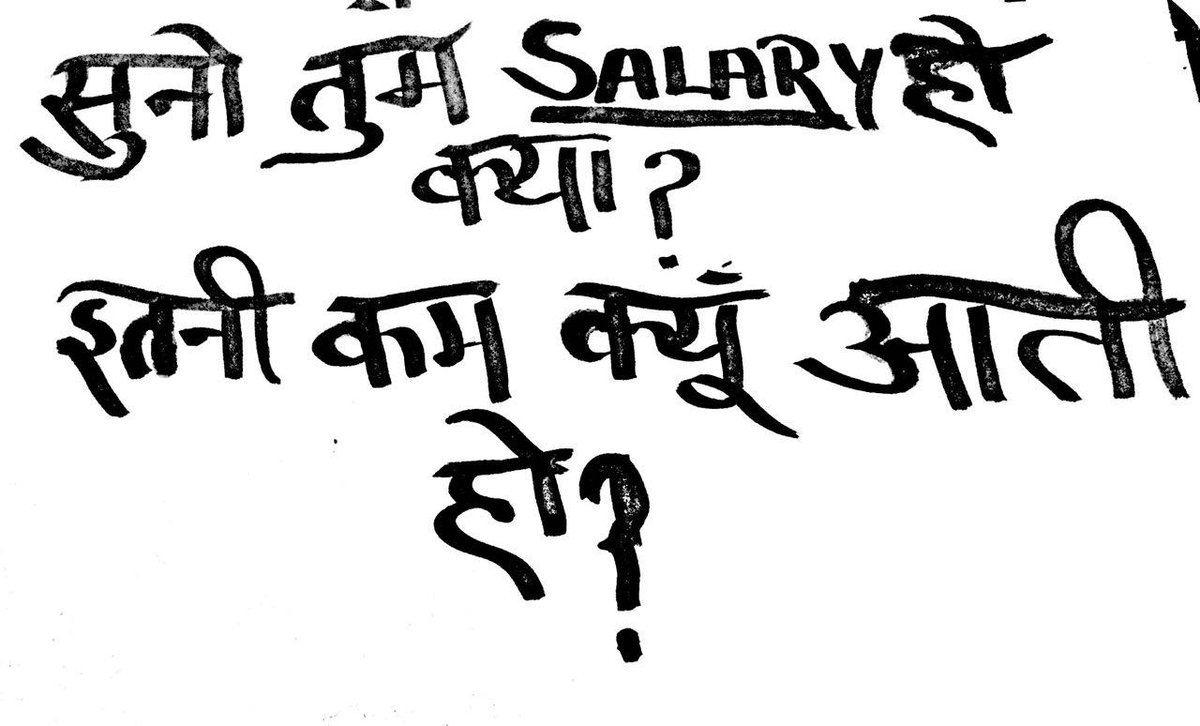 सुनो तुम SALARY हो
क्या?
इतनी कम क्यूँ आती
हो?